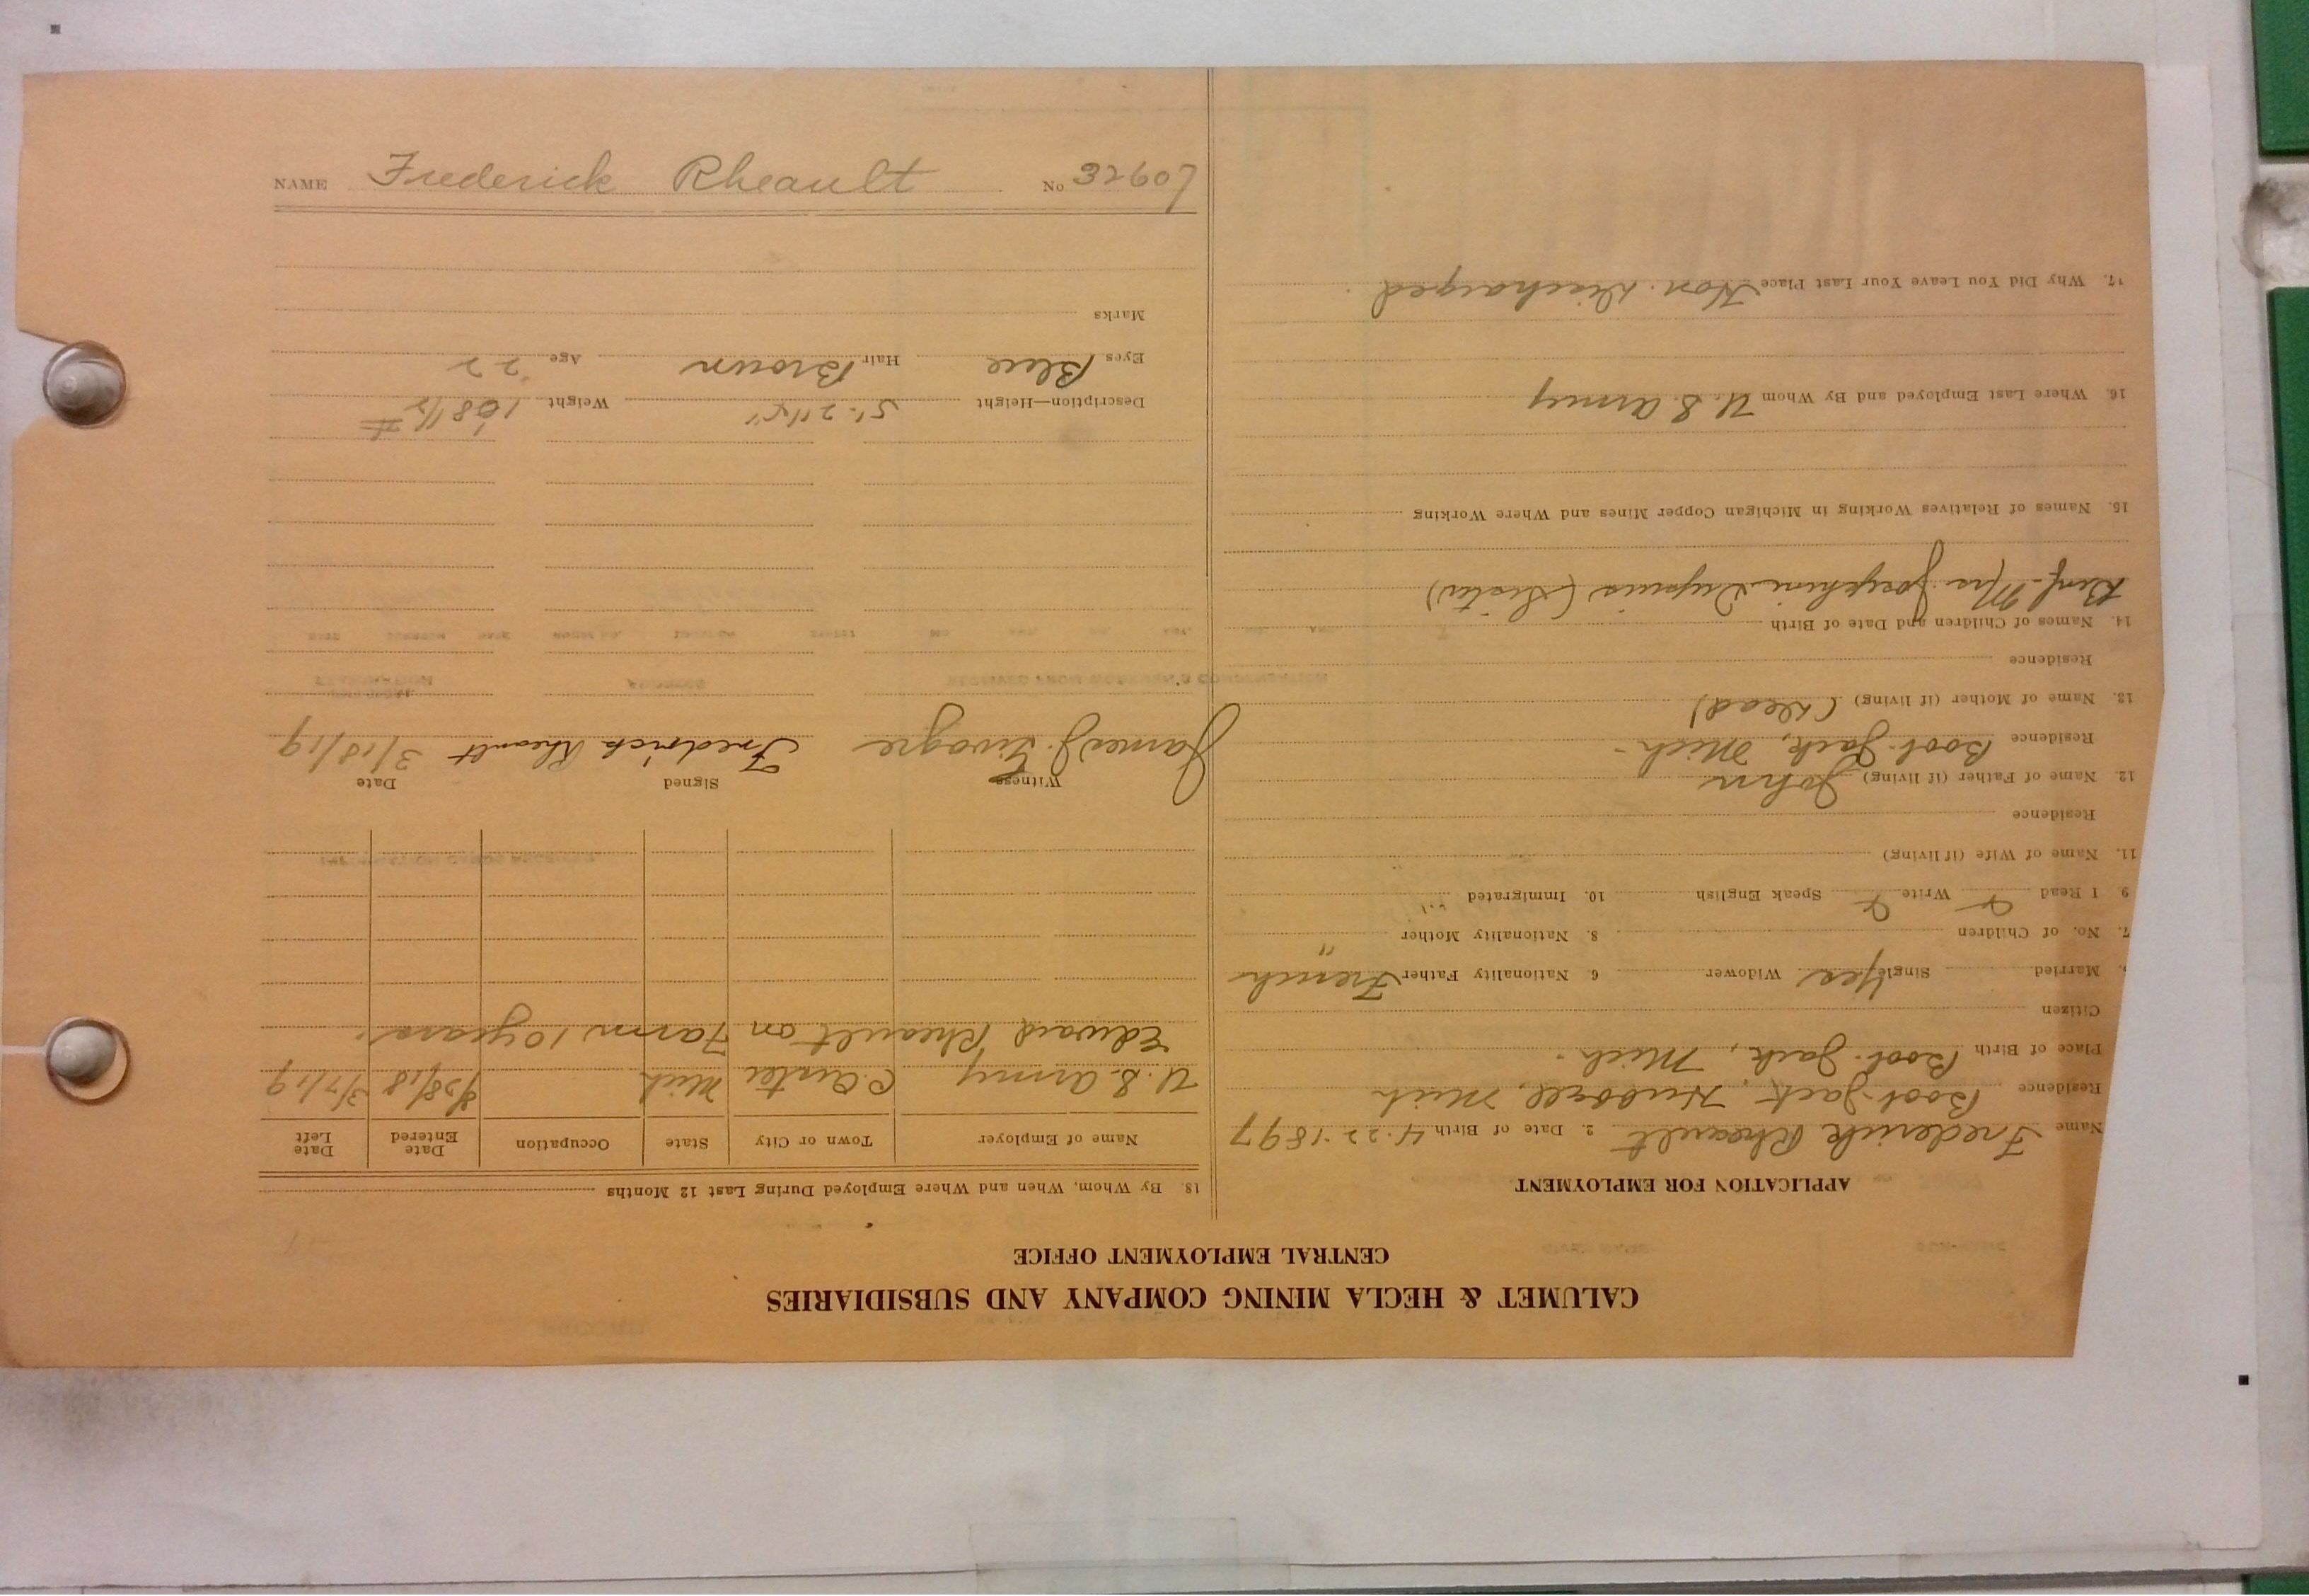 NAME Frederick Rheault No 32607
CALUMET & HECLA MINING COMPANY AND SUBSIDIARIES
CENTRAL EMPLOYMENT OFFICE
APPLICATION FOR EMPLOYMENT
Name Frederick Rheault 2. Date of Birth 4-22-1897
Residence Boot-Jack, Hubbell, Mich
Place of Birth Boot-Jack, Mich.
Citizen
Married Single Yes Widower 6. Nationality Father French
7. No. of Children 8. Nationality Mother "
9 I Read Write Speak English 10. Immigrated
11. Name of Wife (if living)
Residence
12. Name of Father (if living) John
Residence Boot-Jack, Mich-
13. Name of Mother (if living) (Dead)
Residence
14. Names of Children and Date of Birth
Benf- Mrs Josephine Dupuis (Sister)
15. Names of Relatives Working in Michigan Copper Mines and Where Working
16. Where Last Employed and By Whom U.S. Army
17. Why Did You Leave Your Last Place Hon. Discharged.
18. By Whom, When and Where Employed During Last 12 Months
Name of Employer Town or City State Occupation Date Entered Date Left
U.S. Army C. Custer Mich 8/28/18 3/7/19
Edward Rheault on Farm 10 years.
Witness Signed Date
James J. Fredrick Rheault 3/18/19
Description—Height 5'-2 1/2" Weight 168 1/2 #
Eyes Blue Hair Brown Age 22
Marks